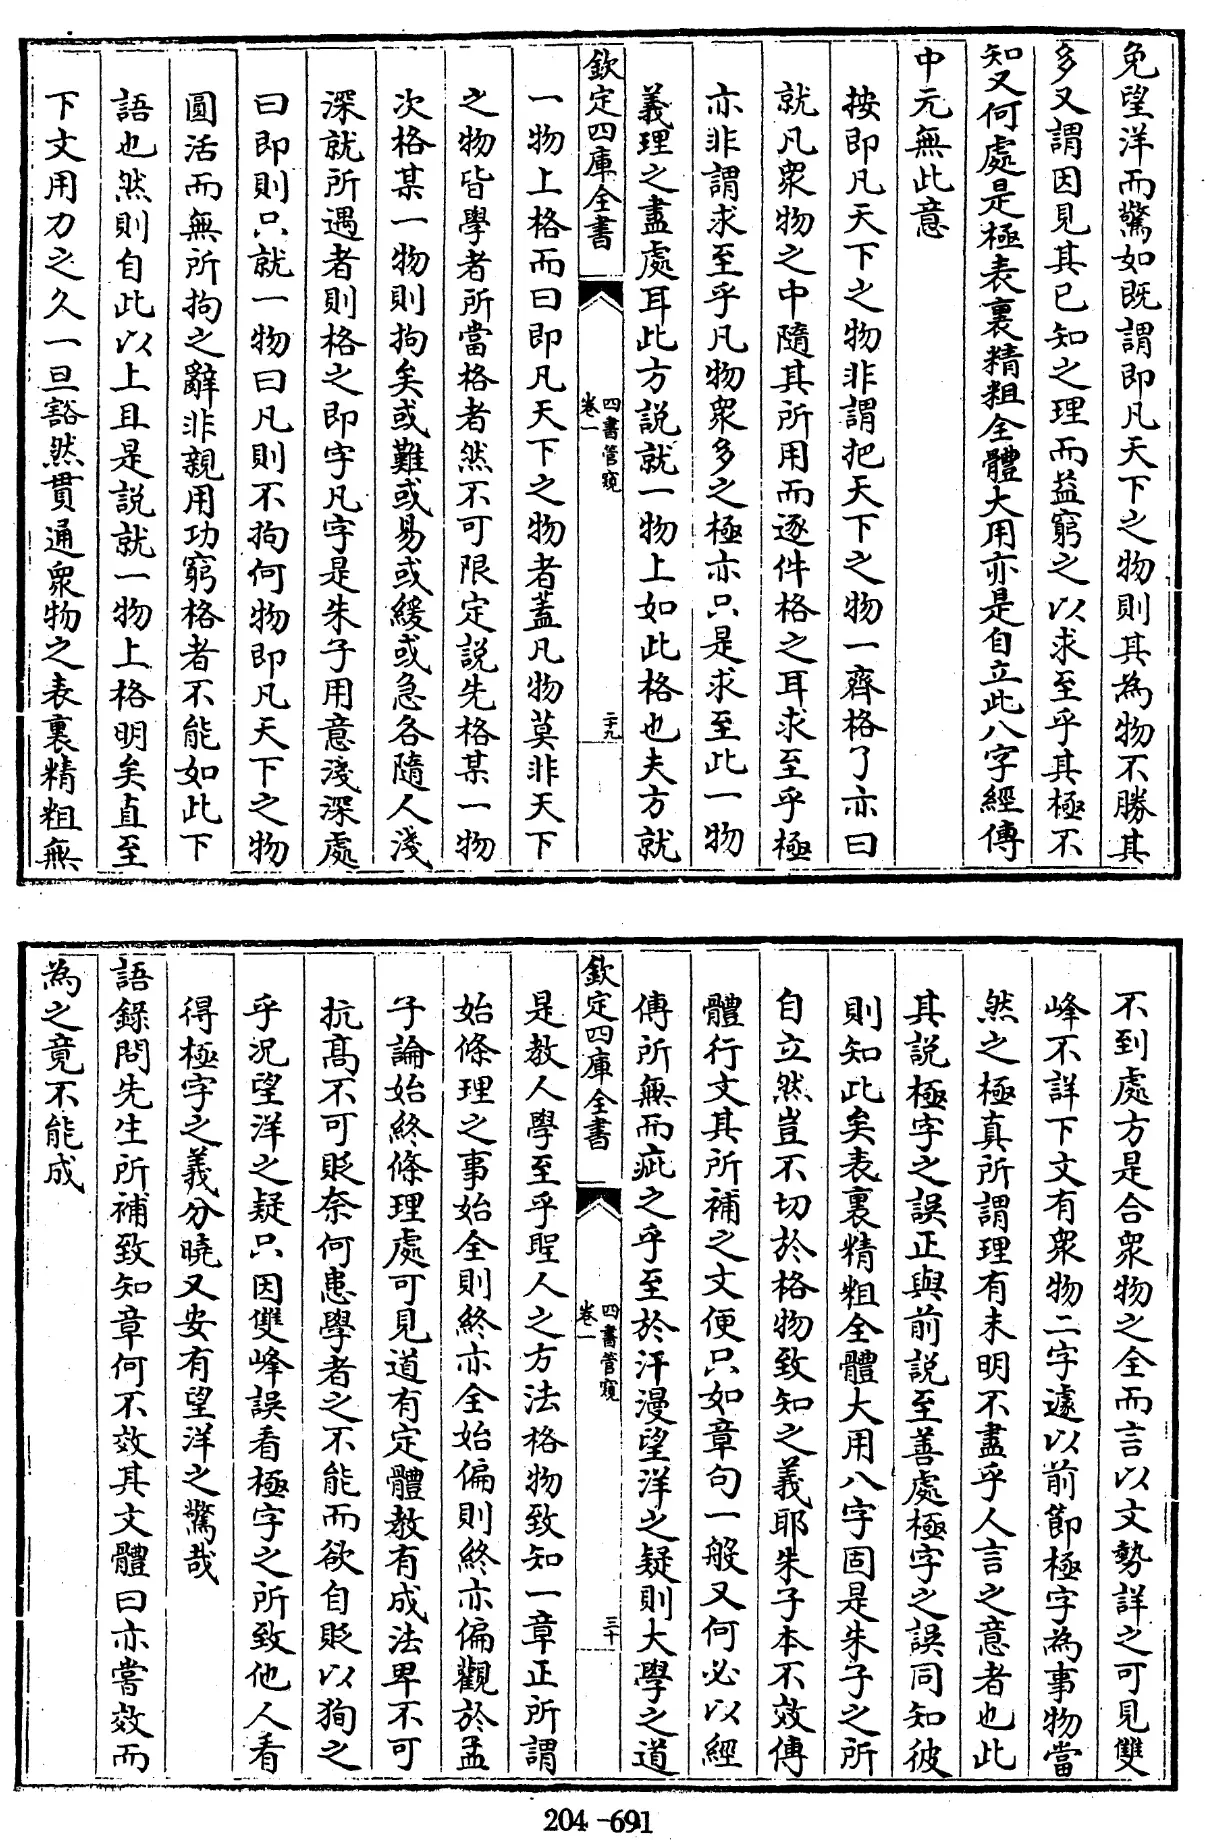 免望洋而驚如既謂即凡天下之物則其為物不勝其
多又謂因見其已知之理而益窮之以求至乎其極不
知又何處是極表裏精粗全體大用亦是自立此八字經傳
中元無此意
按即凡天下之物非謂把天下之物一齊格了亦曰
就凡衆物之中隨其所用而逐件格之耳求至乎極
亦非謂求至乎凡物衆多之極亦只是求至此一物
義理之盡處耳此方説就一物上如此格也夫方就
欽定四庫全書
四書管窺
卷一
二十九
一物上格而曰即凡天下之物者蓋凡物莫非天下
之物皆學者所當格者然不可限定説先格某一物
次格某一物則拘矣或難或易或緩或急各隨人淺
深就所遇者則格之即字凡字是朱子用意淺深處
曰即則只就一物曰凡則不拘何物即凡天下之物
圓活而無所拘之辭非親用功窮格者不能如此下
語也然則自此以上且是説就一物上格明矣直至
下文用力之久一旦豁然貫通衆物之表裏精粗無
不到處方是合衆物之全而言以文勢詳之可見雙
峰不詳下文有衆物二字遽以前節極字為事物當
然之極真所謂理有未明不盡乎人言之意者也此
其説極字之誤正與前説至善處極字之誤同知彼
則知此矣表裏精粗全體大用八字固是朱子之所
自立然豈不切於格物致知之義耶朱子本不效傳
體行文其所補之文便只如章句一般又何必以經
傳所無而疵之乎至於汗漫望洋之疑則大學之道
欽定四庫全書
四書管窺
卷一
三十
是教人學至乎聖人之方法格物致知一章正所謂
始條理之事始全則終亦全始偏則終亦偏觀於孟
子論始終條理處可見道有定體教有成法卑不可
抗高不可貶奈何患學者之不能而欲自貶以狥之
乎況望洋之疑只因雙峰誤看極字之所致他人看
得極字之義分曉又安有望洋之驚哉
語錄問先生所補致知章何不效其文體曰亦嘗效而
為之竟不能成
204-691